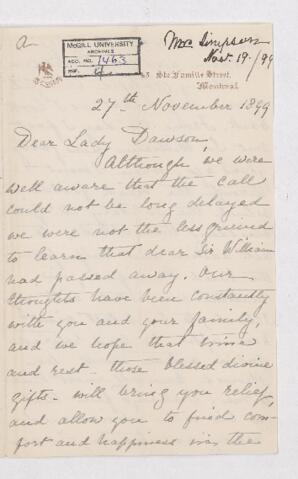 a
McGILL UNIVERSITY
ARCHIVES
ACC. NO. 1463
REF.
Mrs Simpson
Nov. 19./99
Ste Famille Street,
Montreal.
27th November 1899
Dear Lady Dawson,
Although we were
well aware that the call
could not be long delayed
we were not the less grieved
to learn that dear Sir William
had passed away. Our
thoughts have been constantly
with you and your family,
and we hope that time
and rest - those blessed divine
gifts - will bring you relief,
and allow you to find com-
fort and happiness in the